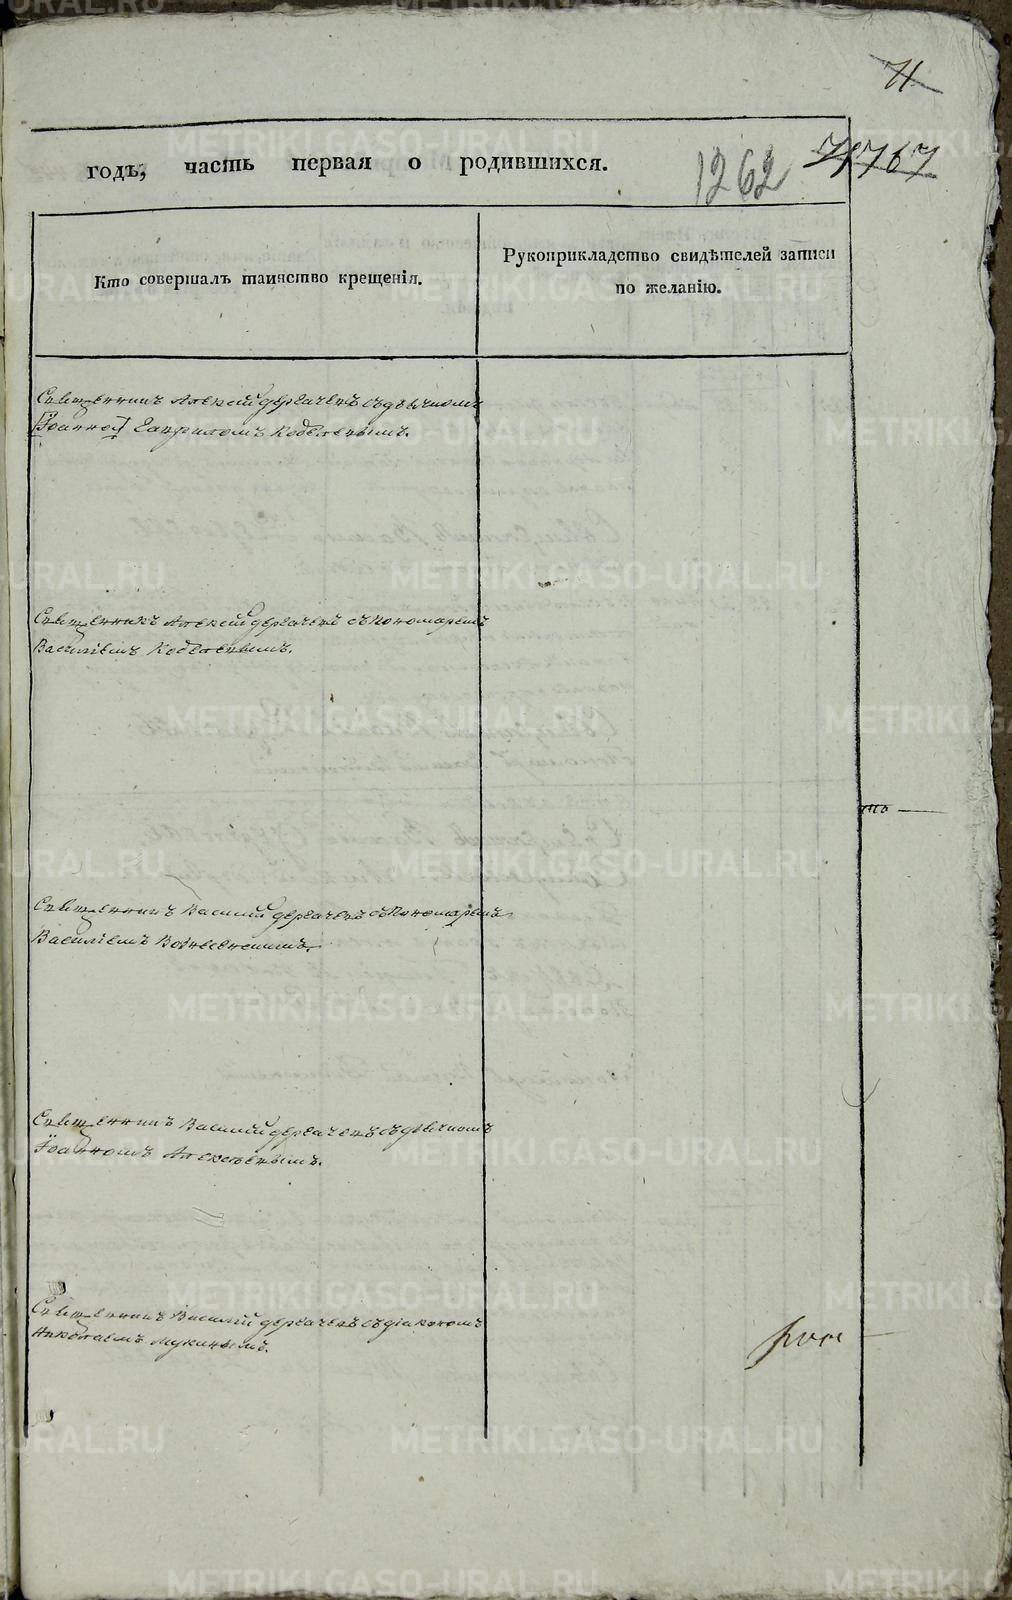 71
годъ, часть первая о родившихся.
1262
71767
Кто совершалъ таинство крещенія.
Рукоприкладство свидѣтелей записи
по желанію.
Священникъ Алексей Дергачевъ съ дьячкомъ
Гавриломъ Кобелевымъ.
Священникъ Алексей Дергачевъ съ Пономаремъ
Василіемъ Кобелевымъ.
Священникъ Василий Дергачевъ съ Пономаремъ
Василіемъ Вознесенскимъ.
Священникъ Василий Дергачевъ съ дьячкомъ
Іоанномъ Алексѣевымъ.
Священникъ Василий Дергачевъ съ діакономъ
Николаемъ Мукинымъ.
METRIKI.GASO-URAL.RU